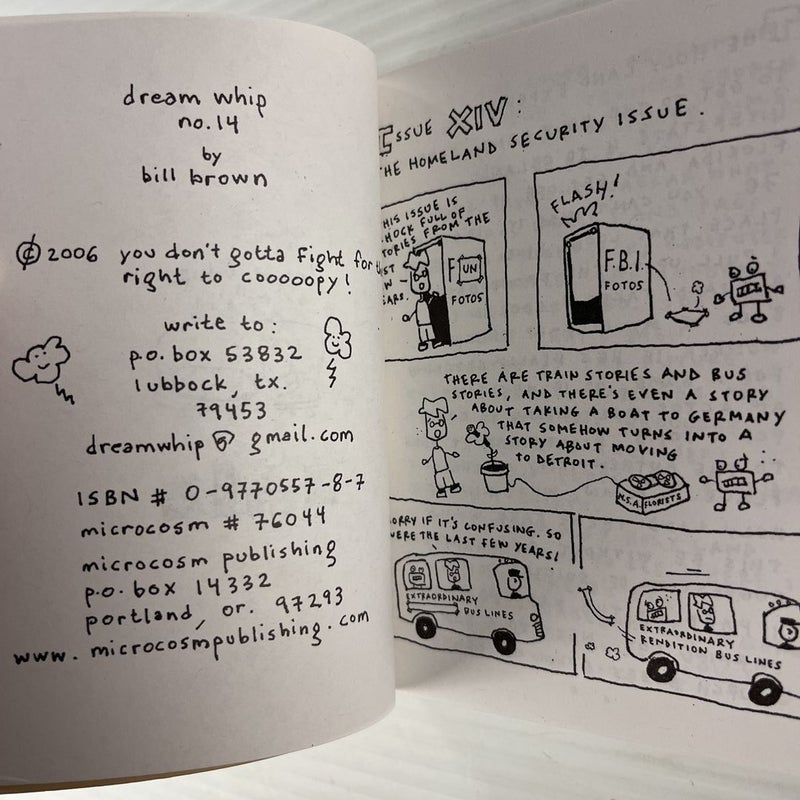 dream whip
no.14
by
bill brown
₵ 2006 you don't gotta fight for
right to cooooopy!
write to:
p.o. box 53832
lubbock, tx.
79453
dreamwhip @ gmail.com
ISBN # 0-9770557-8-7
microcosm # 76044
microcosm publishing
p.o. box 14332
portland, or. 97293
www.microcosmpublishing.com
ISSUE XIV:
THE HOMELAND SECURITY ISSUE.
HIS ISSUE IS
HOCK FULL OF
TORIES FROM THE
ST
W
EARS.
FUN
FOTOS
FLASH!
F.B.I.
FOTOS
THERE ARE TRAIN STORIES AND BUS
STORIES, AND THERE'S EVEN A STORY
ABOUT TAKING A BOAT TO GERMANY
THAT SOMEHOW TURNS INTO A
STORY ABOUT MOVING
TO DETROIT.
N.S.A. FLORISTS
ORRY IF IT'S CONFUSING. SO
WERE THE LAST FEW YEARS!
EXTRAORDINARY
BUS LINES
EXTRAORDINARY
RENDITION BUS LINES